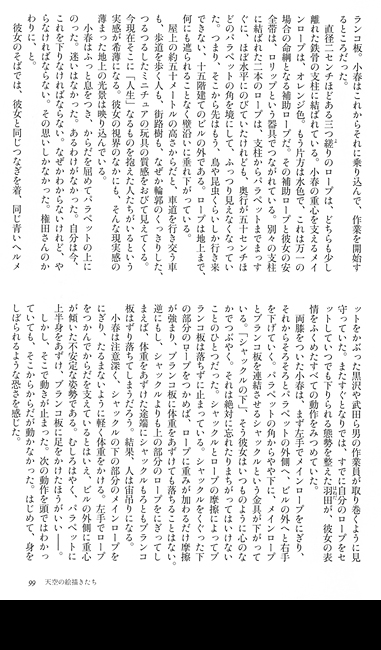 ランコ板。小春はこれからそれに乗り込んで、作業を開始す
るところだった。
　直径二センチほどある三つ縒りのロープは、どちらも少し
離れた鉄骨の支柱に結ばれている。小春の重心を支えるメイ
ンロープは、オレンジ色。もう片方は水色で、これは万一の
場合の命綱となる補助ロープだ。その補助ロープと彼女の安
全帯は、ロリップという器具でつながれている。別々の支柱
に結ばれた二本のロープは、支柱からパラペットまでまっす
ぐに、ほぼ水平にのびていたけれども、奥行が五十センチほ
どのパラペットの角を境にして、ふっつり見えなくなってい
た。つまり、そこから先はもう、鳥や昆虫くらいしか行き来
できない、十五階建てのビルの外である。ロープは地上まで、
何にも遮られることなく壁沿いに垂れ下がっている。
　屋上の約五十メートルの高さからだと、車道を行き交う車
も、歩道を歩く人も、街路樹も、なぜか輪郭のくっきりした、
つるつるしたミニチュアの玩具の質感をおびて見えてくる。
今現在そこに「人生」なるものを抱えた人たちがいるという
実感が希薄になる。彼女の視界のなかにも、そんな現実感の
薄まった地上の光景は映り込んでいる。
　小春はふっと息をつき、からだを屈めてパラペットの上に
のった。迷いはなかった。あるわけがなかった。自分は今、
これを下りなければならない。なぜかわからないけれど、や
らなければならない。その思いしかなかった。権田さんのか
わりに、と。
　彼女のそばでは、彼女と同じつなぎを着、同じ青いヘルメ
ットをかぶった黒沢や武田ら男の作業員が取り巻くように見
守っていた。またすぐとなりでは、すでに自分のロープをセ
ットしていつでも下りられる態勢を整えた羽田が、彼女の表
情をふくめたすべての動作をみつめていた。
　両膝をついた小春は、まず左手でメインロープをにぎり、
それからそろそろとパラペットの外側へ、ビルの外へと右手
を下げていく。パラペットの角からやや下に、メインロープ
とブランコ板を連結させるシャックルという金具が下がって
いる。「シャックルの下」、そう彼女はいつものように心のな
かでつぶやく。それは絶対に忘れたりまちがってはいけない
ことのひとつだった。シャックルとロープの摩擦によってブ
ランコ板は落ちずに止まっている。シャックルをくぐった下
の部分のロープをつかめば、ロープに重みが加わるだけ摩擦
が強まり、ブランコ板に体重をあずけても落ちることはない。
逆にもし、シャックルよりも上の部分のロープをにぎってし
まえば、体重をあずけた途端にシャックルもろともブランコ
板はずり落ちてしまうだろう。結果、人は宙吊りになる。
　小春は注意深く、シャックルの下の部分のメインロープを
にぎり、たるまないように軽く体重をかける。左手でロープ
をつかんでからだを支えているとはいえ、ビルの外側に重心
が傾いた不安定な姿勢である。むしろはやく、パラペットに
上半身をあずけ、ブランコ板に足をかけたほうがいい――。
　しかし、そこで動きが止まった。次の動作を頭ではわかっ
ていても、そこからからだが動かなかった。はじめて、身を
しばられるような恐さを感じた。
99　天空の絵描きたち